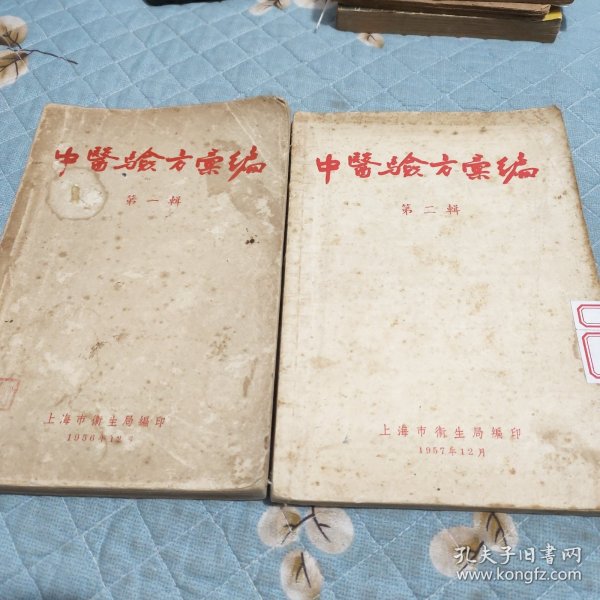 中醫验方彙编
第一輯
上海市衞生局編印
1956年12月
中醫验方彙编
第二輯
上海市衞生局編印
1957年12月
孔夫子旧书网
www.kongfz.com